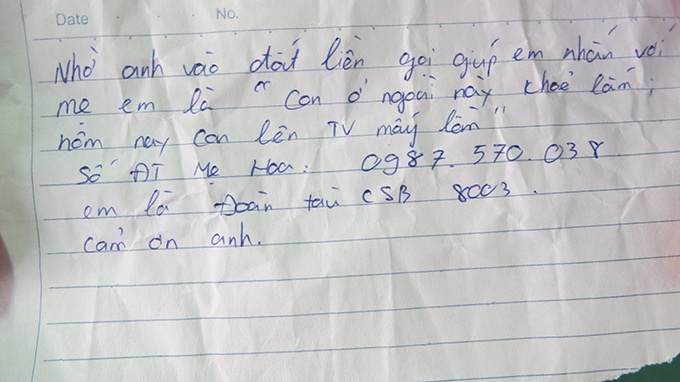 Date No.
Nhờ anh vào đất liền gọi giúp em nhắn với
mẹ em là " Con ở ngoài này khoẻ lắm,
hôm nay con lên TV mấy lần "
Số ĐT Mẹ Hoa: 0987.570.038
em là Đoàn tàu CSB 8003.
cảm ơn anh.